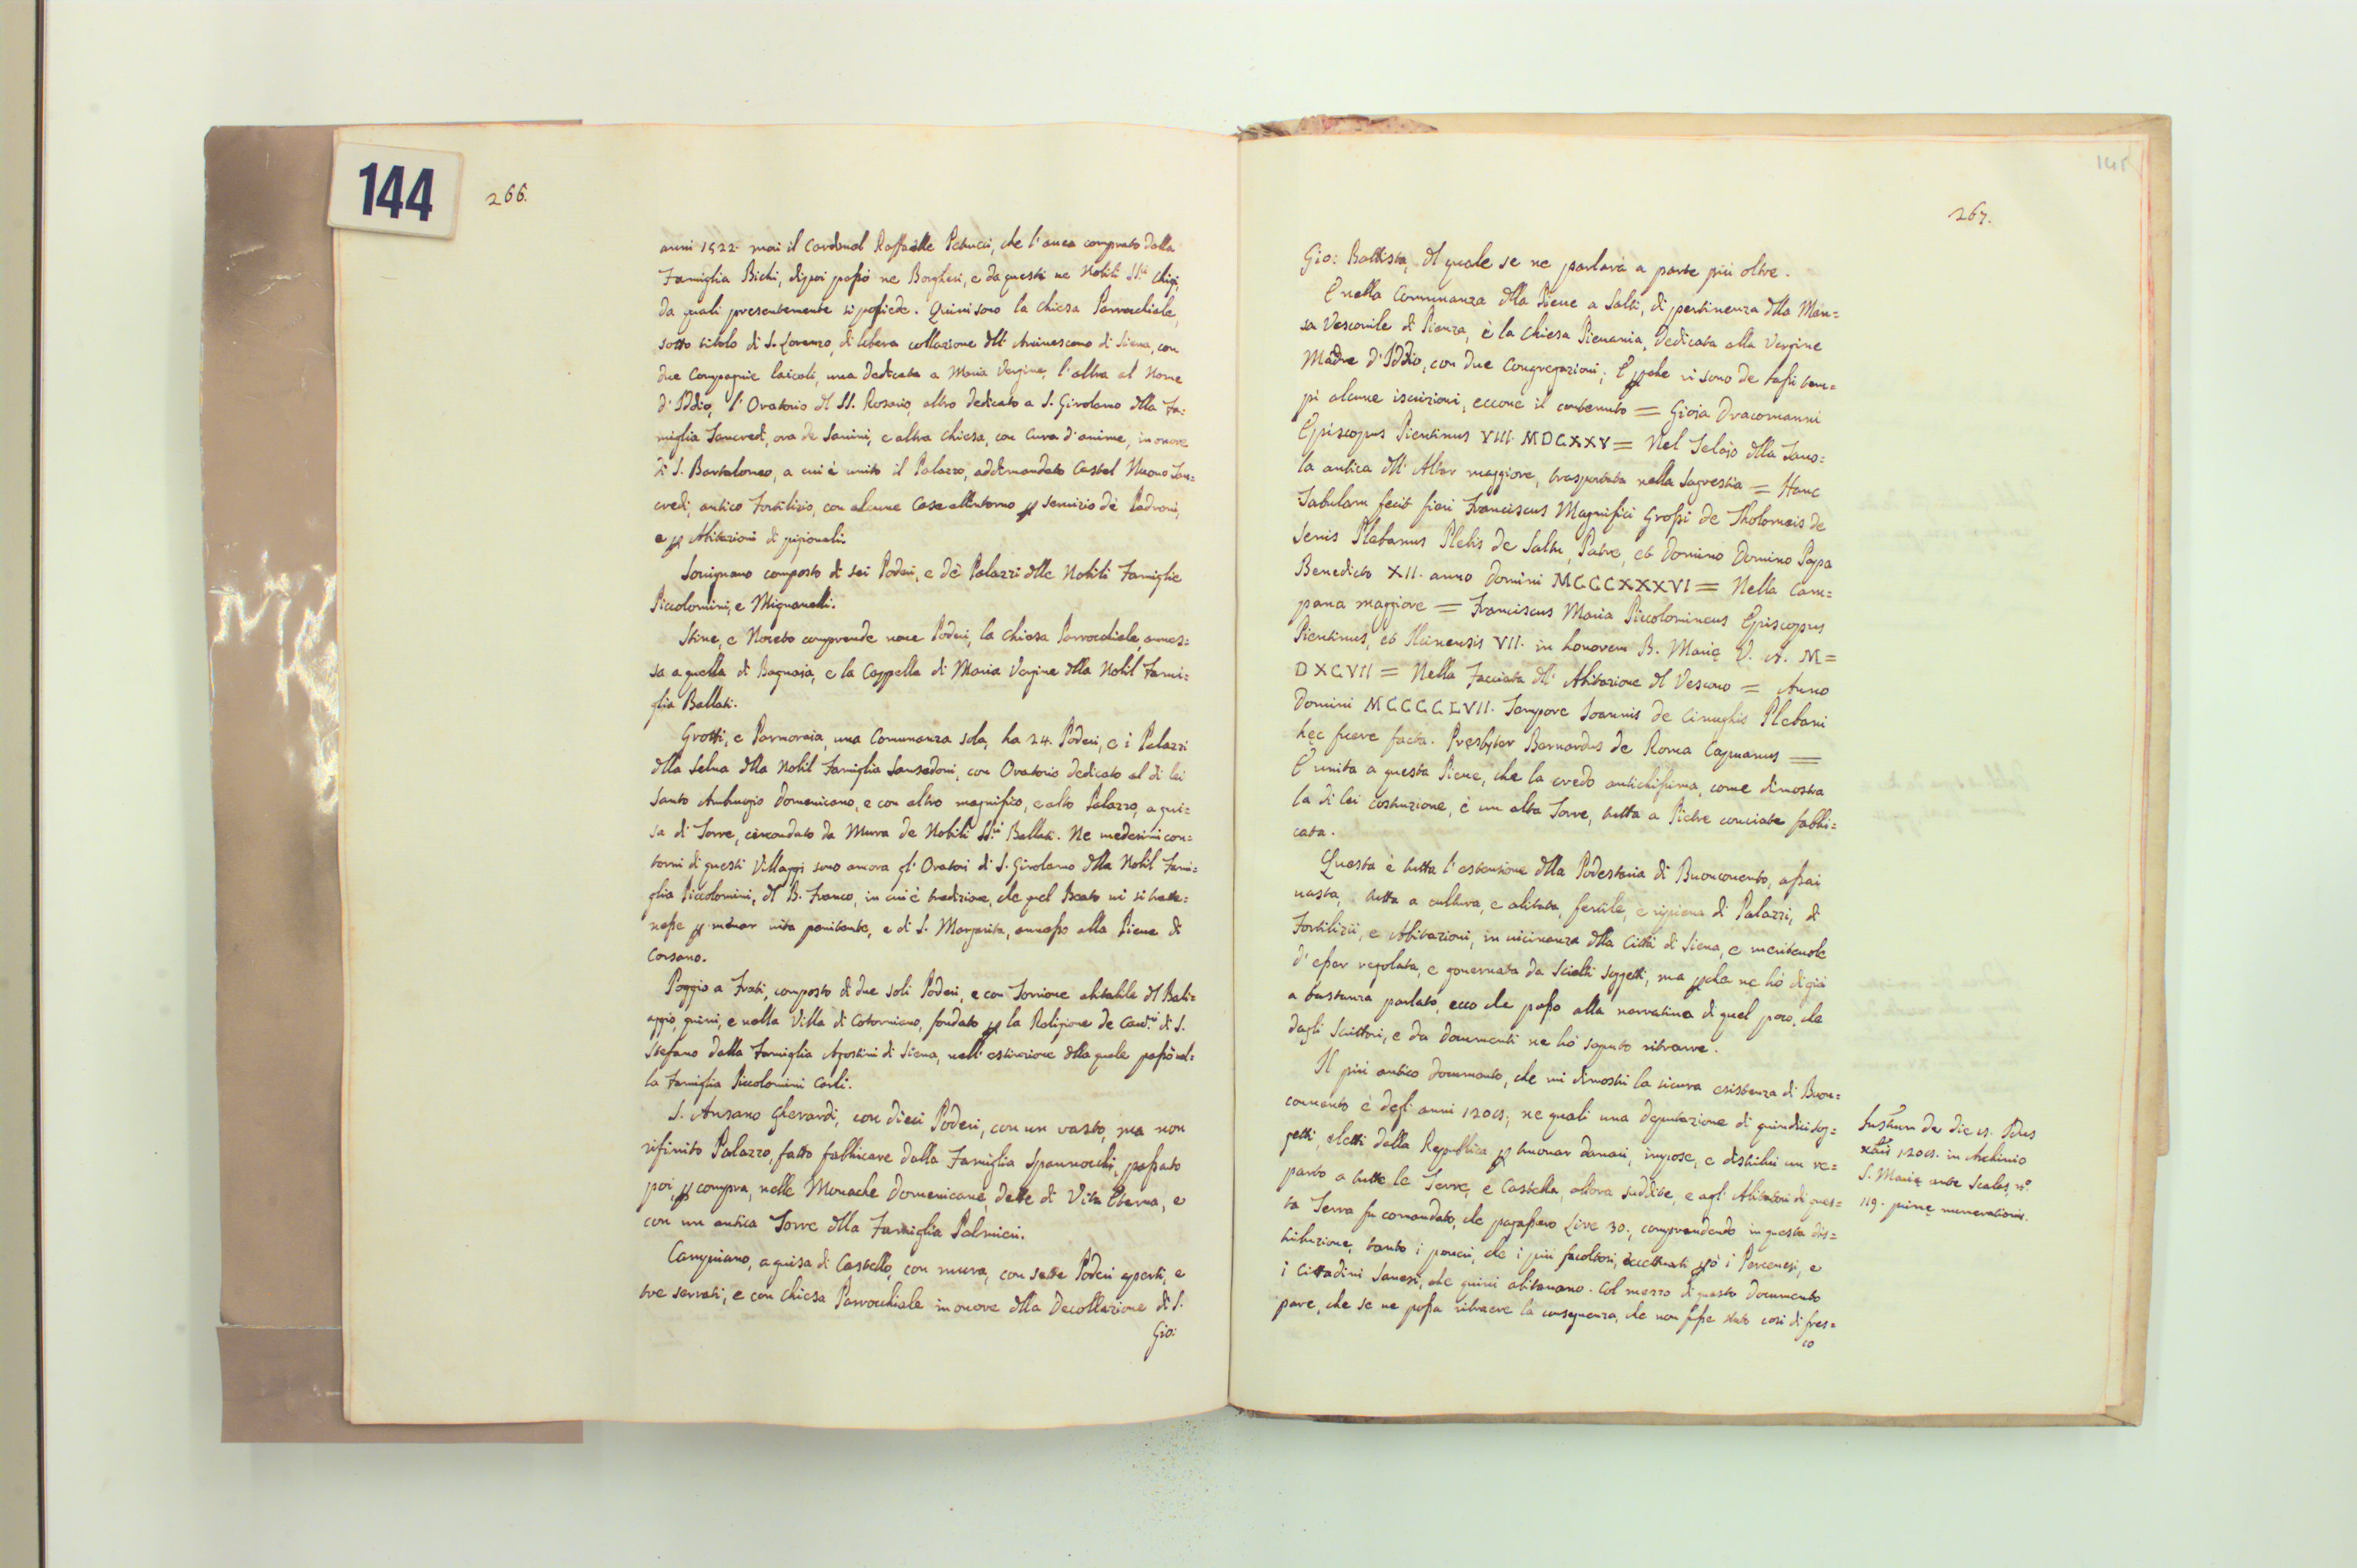 144
266.
anni 1522. mai il Cardinal Raffaelle Petrucci, che l'avea comprato dalla
Famiglia Bichi, dipoi passò ne Borghesi, e da questi ne Nobili SS.ri Chigi,
da quali presentemente si possiede. Quivi sono la Chiesa Parrochiale,
sotto titolo di S. Lorenzo, di libera collazione dell' Arcivescovo di Siena, con
due Compagnie laicali, una dedicata a Maria Vergine, l'altra al Nome
d'Iddio, l'Oratorio del SS. Rosario, altro dedicato a S. Girolamo della Fa=
miglia Tancredi, ora de Sanini, e altra Chiesa, con Cura d'anime, in onore
di S. Bartolomeo, a cui è unito il Palazzo, addimandato Castel Nuovo Tan=
credi, antico Fortilizio, con alcune Case all'intorno p servizio dè Padroni,
e p Abitazioni di pigionali.
Sovignano composto di sei Poderi, e dè Palazzi delle Nobili Famiglie
Piccolomini, e Mignanelli.
Stine, e Noceto comprende nove Poderi, la Chiesa Parrochiale, annes=
sa a quella di Bagnaia, e la Cappella di Maria Vergine della Nobil Fami=
glia Ballati.
Grotti, e Parmoraia, una Comunanza sola, ha 24. Poderi, e i Palazzi
della Selva della Nobil Famiglia Sansedoni, con Oratorio dedicato al di lei
Santo Ambrogio Domenicano, e con altro magnifico, e alto Palazzo, a gui=
sa di Torre, circondato da Mura de Nobili SS.ri Ballati. Ne medesimi con=
torni di questi Villaggi sono ancora gl'Oratori di S. Girolamo della Nobil Fami=
glia Piccolomini, del B. Franco, in cui è tradizione, che quel Beato vi si tratte=
nesse p menar vita penitente, e di S. Margarita, annesso alla Pieve di
Corsano.
Poggio a Frati, composto di due soli Poderi, e con Torrione abitabile del Bali=
aggio, quivi, e nella Villa di Cotorniano, fondato p la Religione de Cav.ri di S.
Stefano dalla Famiglia Agostini di Siena, nell'estinzione della quale passò nel=
la Famiglia Piccolomini Carli.
S. Ansano Gherardi, con dieci Poderi, con un vasto, ma non
rifinito Palazzo, fatto fabbricare dalla Famiglia Spannocchi, passato
poi, p compra, nelle Monache Domenicane, dette di Vita Eterna, e
con un antica Torre della Famiglia Palmieri.
Campriano, a guisa di Castello, con mura, con sette Poderi aperti, e
tre serrati, e con Chiesa Parrochiale in onore della Decollazione di S.
Gio:
145
267.
Gio: Battista, del quale se ne parlarà a parte più oltre.
E nella Comunanza della Pieve a Salti, di pertinenza della Men=
sa Vescovile di Pienza, è la Chiesa Pievania, Dedicata alla Vergine
Madre d'Iddio, con due Congregazioni; E pche vi sono de bassi tem=
pi alcune iscrizioni, eccone il contenuto = Gioia Dracomanni
Episcopus Pientinus VIII. MDCXXV = Nel Telaio della Tavo=
la antica dell' Altar maggiore, trasportata nella Sagrestia = Hanc
Tabulam fecit fieri Franciscus Magnifici Grossi de Tholomeis de
Senis Plebanus Plebis de Saltu, Patre, et Domino Domino Papa
Benedicto XII. anno Domini MCCCXXXVI = Nella Cam=
pana maggiore = Franciscus Maria Piccolomineus Episcopus
Pientinus, et Ilcinensis VII. in honorem B. Marie V. A. M=
DXCVII = Nella Facciata dell' Abitazione del Vescovo = Anno
Domini MCCCCLVII. Tempore Ioannis de Cinughis Plebani
hęc fuere facta. Presbyter Bernardus de Roma Capuanus =
E unita a questa Pieve, che la credo antichissima, come dimostra
la di lei costruzione, è un alta Torre, tutta a Pietre conciate fabbri=
cata.
Questa è tutta l'estensione della Podesteria di Buonconvento, assai
vasta, tutta a cultura, e abitata, fertile, e ripiena di Palazzi, di
Fortilizii, e Abitazioni, in vicinanza della Città di Siena, e meritevole
d'esser regolata, e governata da scielti soggetti, ma pche ne hò digià
a bastanza parlato, ecco che passo alla narrativa di quel poco, che
dagli Scrittori, e da Documenti ne hò saputo ritrarre.
Il più antico Documento, che mi dimostri la sicura esistenza di Buon=
convento è degl'anni 1208, ne quali una deputazione di quindici sog=
getti, eletti dalla Repubblica p trovar danari, impose, e distribuì un re=
parto a tutte le Terre, e Castella, allora suddite, e agl'Abitatori di ques=
ta Terra fu comandato, che pagassero Lire 30., comprendendo in questa dis=
tribuzione, tanto i poveri, che i più facoltosi, eccettuati pò i Percenesi, e
i Cittadini Sanesi, che quivi abitavano. Col mezzo di questo Documento
pare, che se ne possa ritraere la conseguenza, che non fosse stato così di fres=
co
de die
1208. in Archivio
S. Marię ante Scalas, n.o
119. primę numerationis.